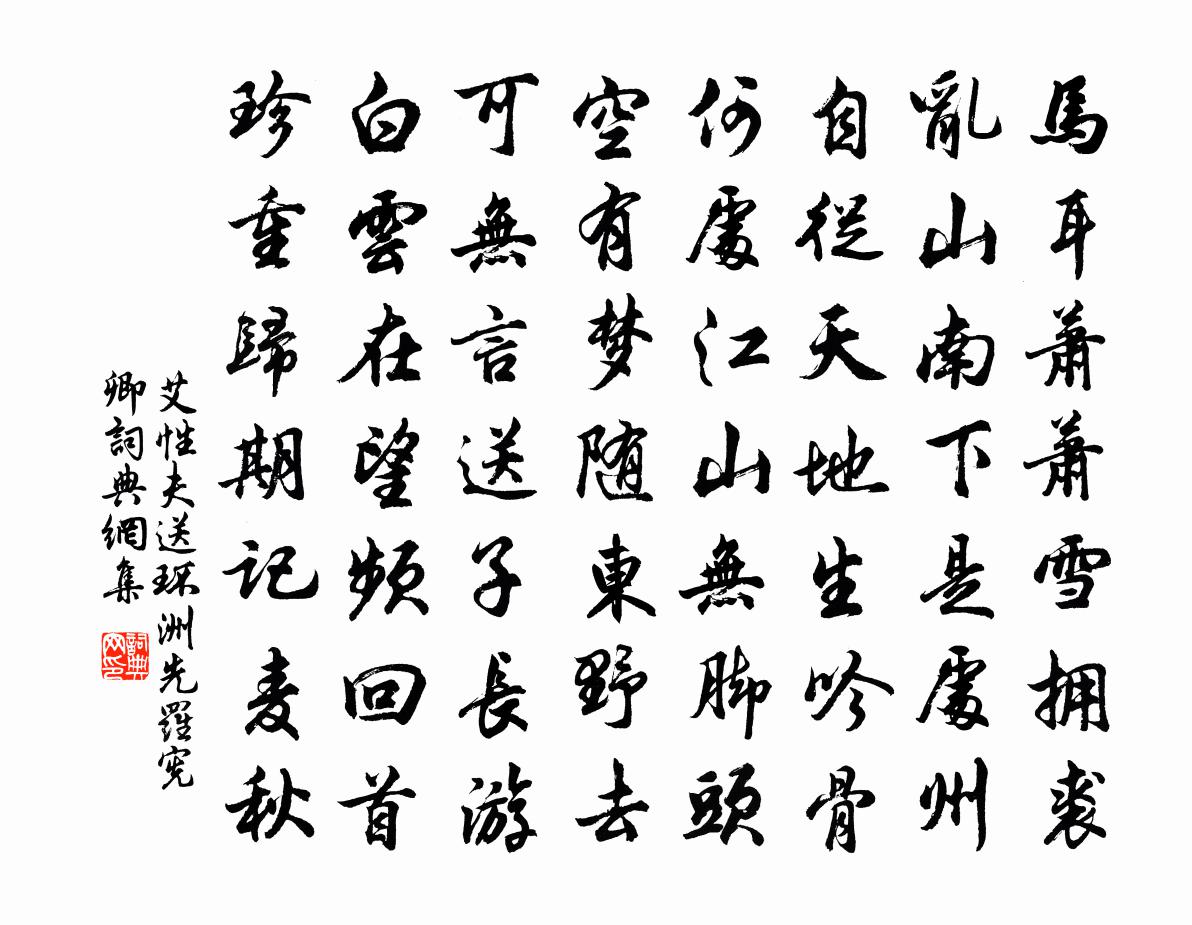 馬耳蕭蕭雪拥裘
亂山南下是處州
自從天地生吟骨
何處江山無脚頭
空有梦随東野去
可無言送子長游
白雲在望頻回首
珍重歸期記麦秋
艾性夫送環洲先羅宪
卿詞典網集
詞典网印